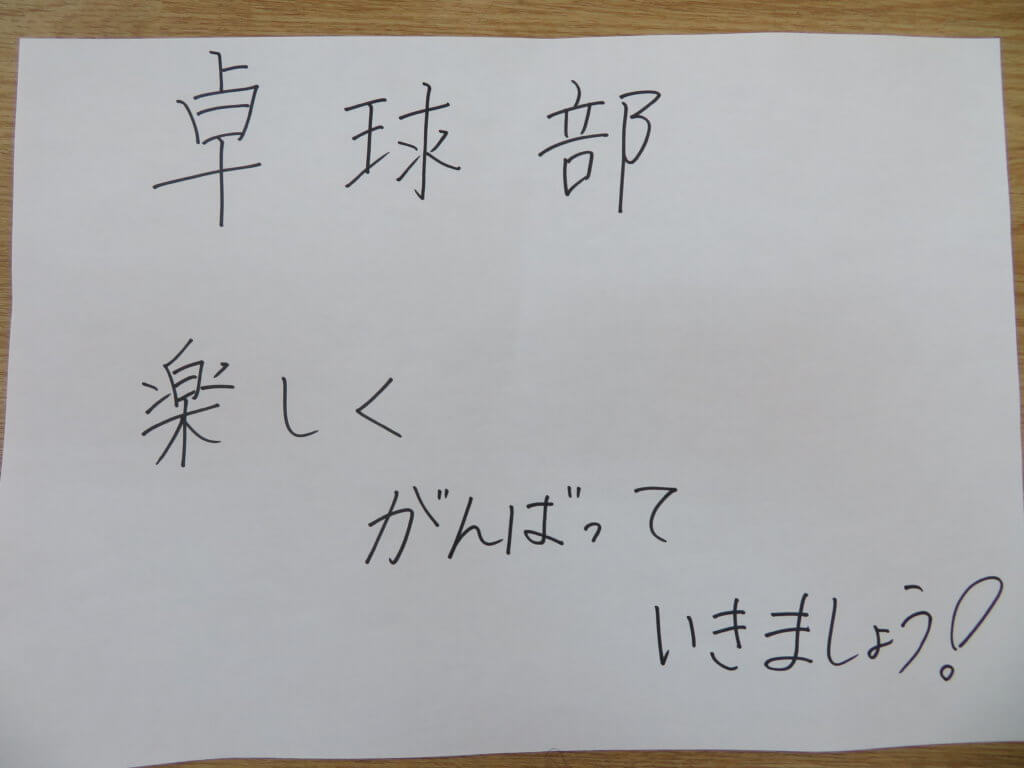 卓球部
楽しく
がんばって
いきましょう!